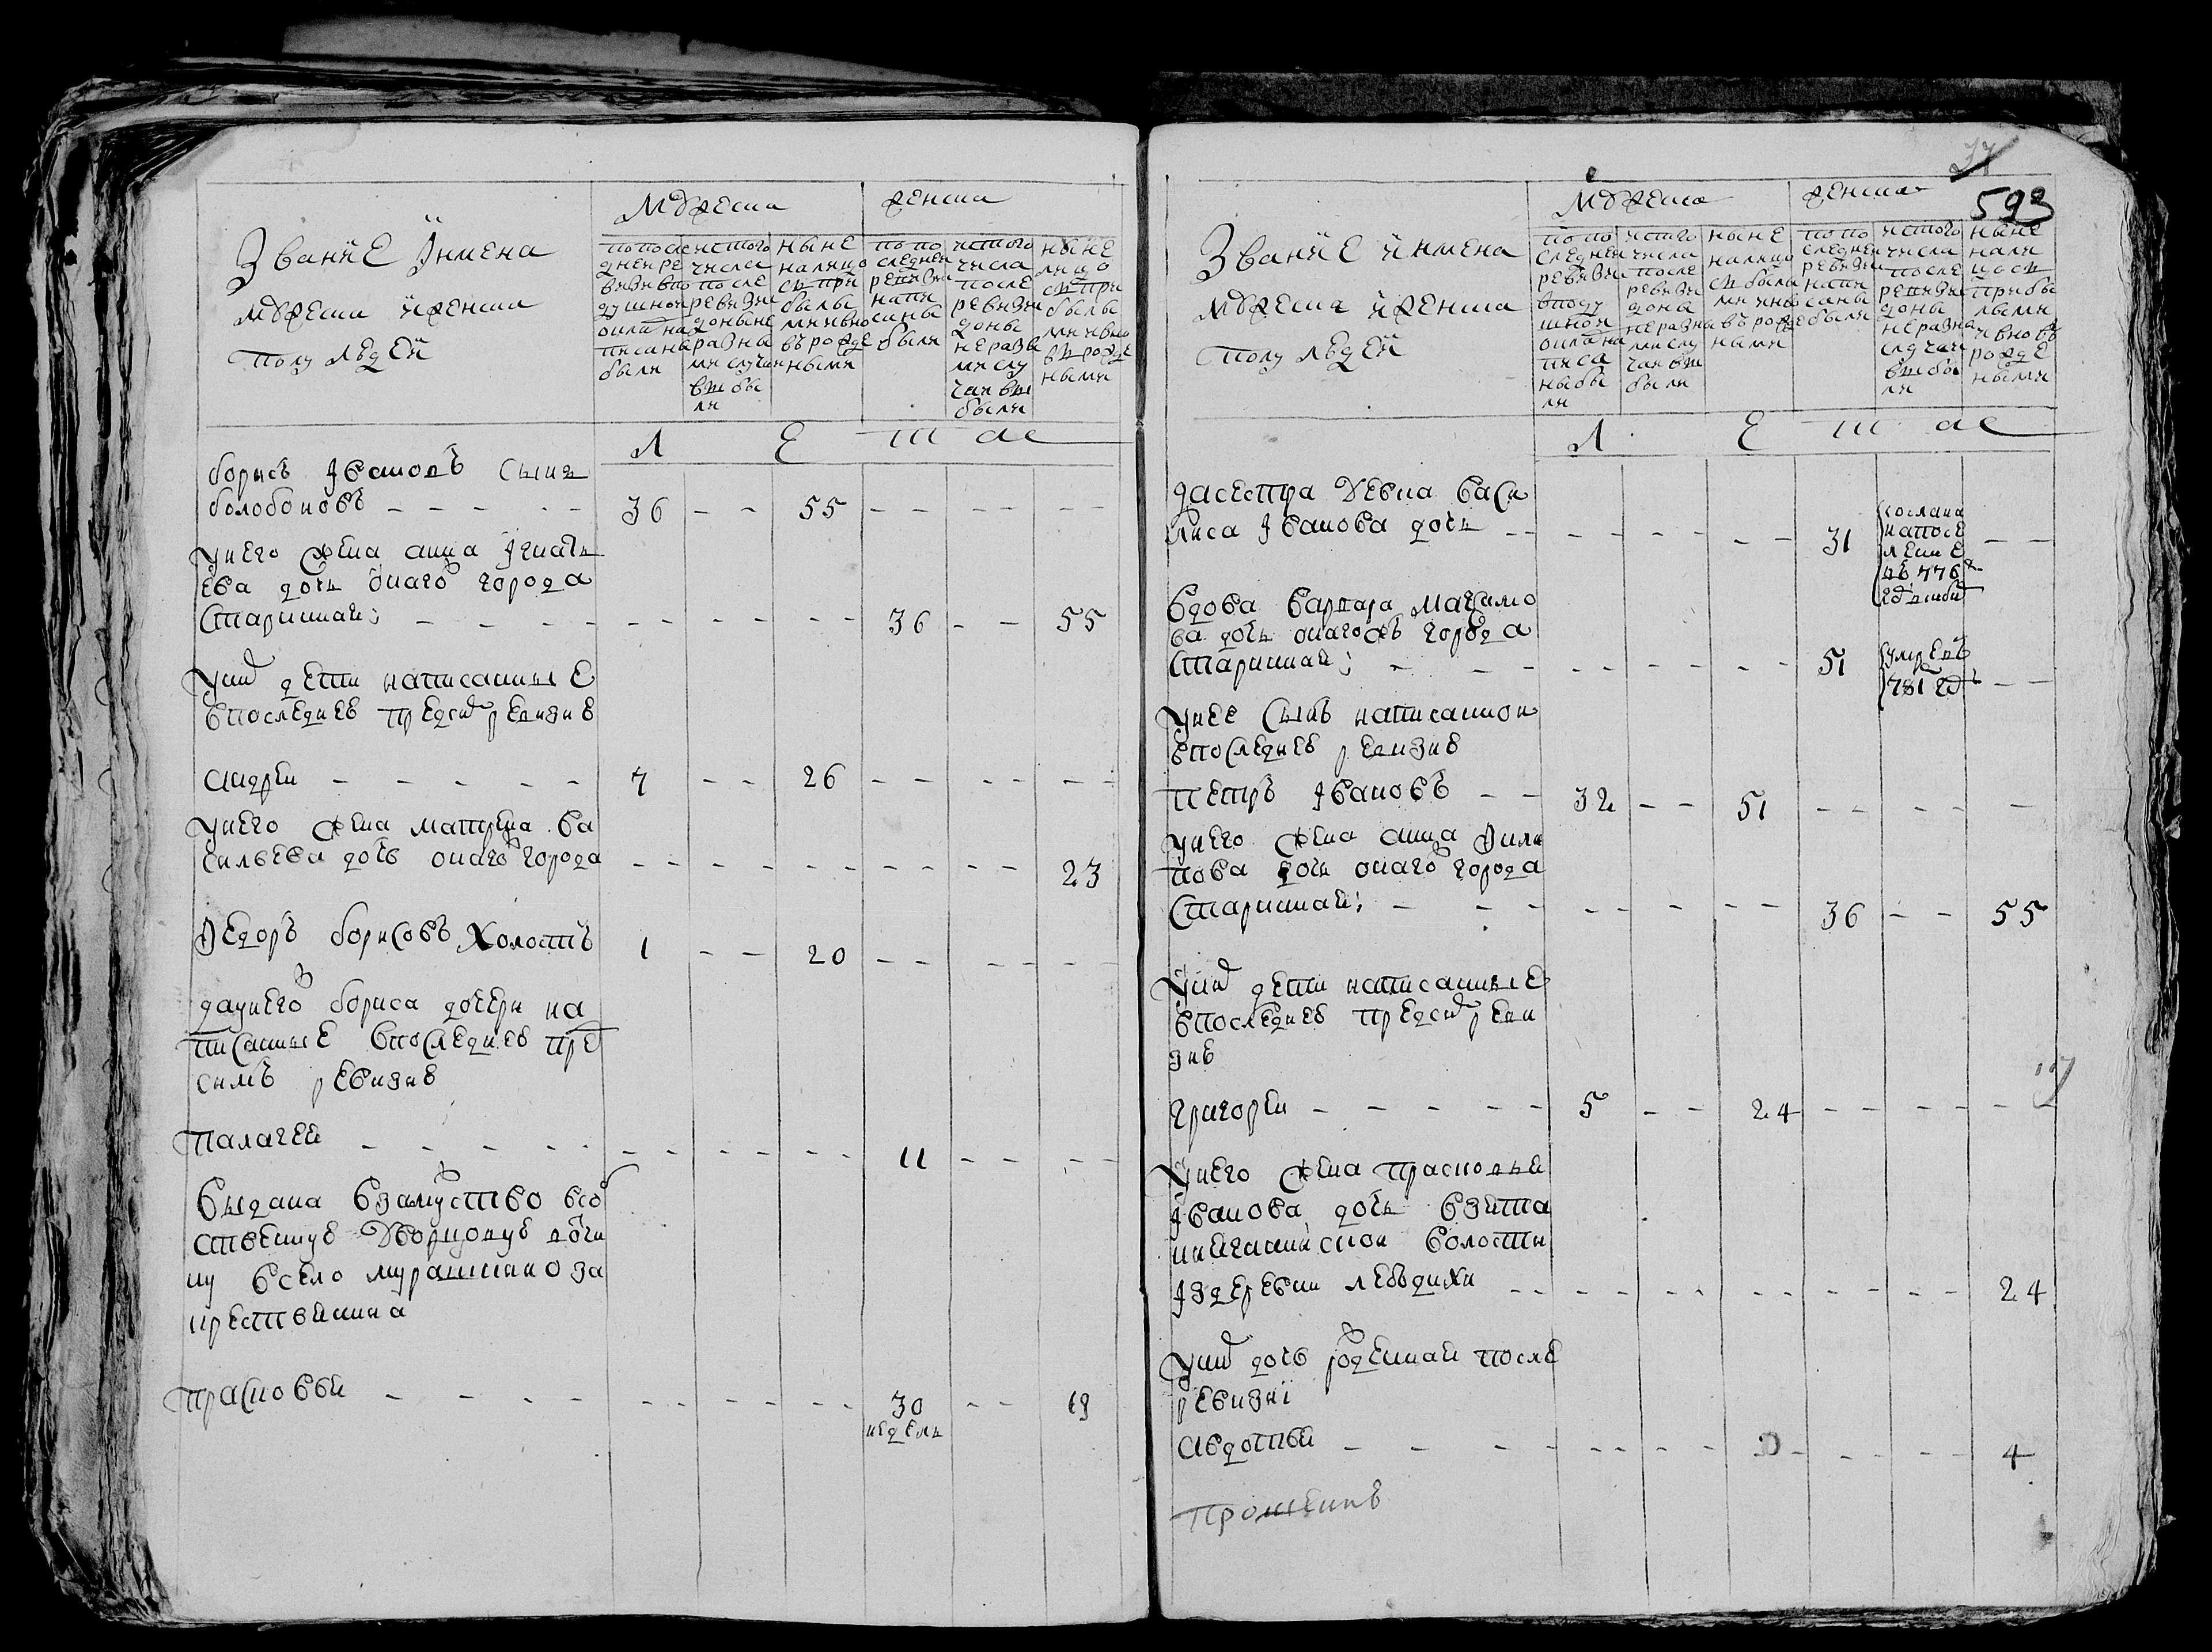 Званїе Іимена
мужеска иженска
полу людеи
Мужеска
женска
попосле
днеи ре
визиї во
душнои
окладна
писана
были
истого
числа
после
ревизи
доныне
разны
ми случаи
выбы
ли
ныне
налицо
сыпри
былы
ми ивно
въ рожде
ными
попо
следнеи
ревизи
напи
саны
были
истого
числа
после
ревизи
доны
неразн
ми слу
чаи вы
были
ныне
лицо
сыпри
былы
ми ивно
въ рожде
ными
Л Е т а
борисъ Iвановъ сынъ
болобоновъ 36 55
унего жена анна Iгнать
ева дочь онаго города
старинная; 36 55
уних дети написанные
впоследнеѣ предсим ревизиѣ
андреи 7 26
унего жена матрена ва
сильева дочь онаго города 23
Федоръ борисовъ холостъ 1 20
даунего бориса дочери на
писанные впоследнеѣ пред
симъ ревизиѣ
палагея 11
выдана взамужство всо
ственнуѣ дворцовуѣ вотчи
ну всело мурашкино за
крестьянина
прасковья 30 19
недель
37
593
Званїе иимена
мужеска иженска
полу людеи
Мужеска
женска
попо
следнеи
ревизи
вподу
шнои
оклана
писа
ны бы
ли
истого
числа
после
ревизи
доны
неразны
ми слу
чаи вы
были
ныне
налицо
сы были
ми ивно
въ рожде
ными
попо
следнеи
ревизи
напи
саны
были
истого
числа
после
ревизи
доны
неразна
случаи
выбы
ли
ныне
нали
цосы
прибы
лыми
ивновъ
рожде
ными
Л Е т а
дасестра девка васи
лиса Iванова дочь 31
сослана
напосе
ление
въ 776м
году
вдова варвара максимо
ва дочь онагожъ города
старинная; 51
умре въ
781 году
унее сынъ написаннои
впоследнеѣ ревизиѣ
петръ Iвановъ 32 51
унего жена анна Фили
пова дочь онаго города
старинная; 36 55
уних дети написанные
впоследнеѣ предсим реви
зиѣ
григореи 5 24
унего жена прасковья
Iванова дочь взята
волости
Iздеревни лебедихи 24
уних дочь рожденная после
ревизиї
авдотья 4